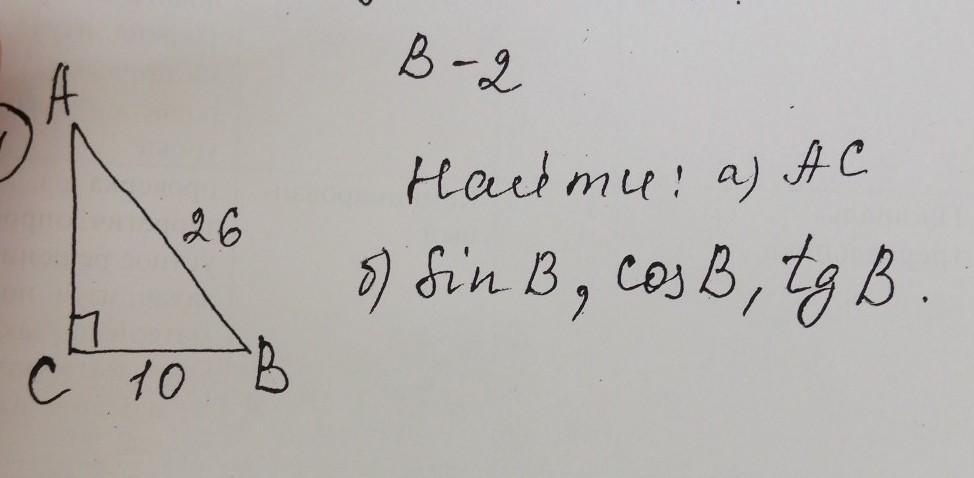 В-2
A
1)
Найти: а) AC
26
б) Sin B, cos B, tg B.
C 10 B